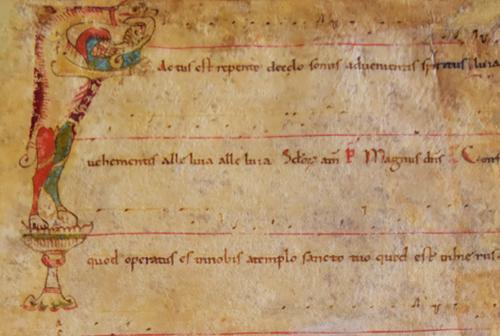 Factus est repente decelo sonus aduenientis spiritus
uehementis alleluia alleluia Sclor' am P Magnus dns
quod operatus es innobis atemplo sancto tuo quod est inhierus